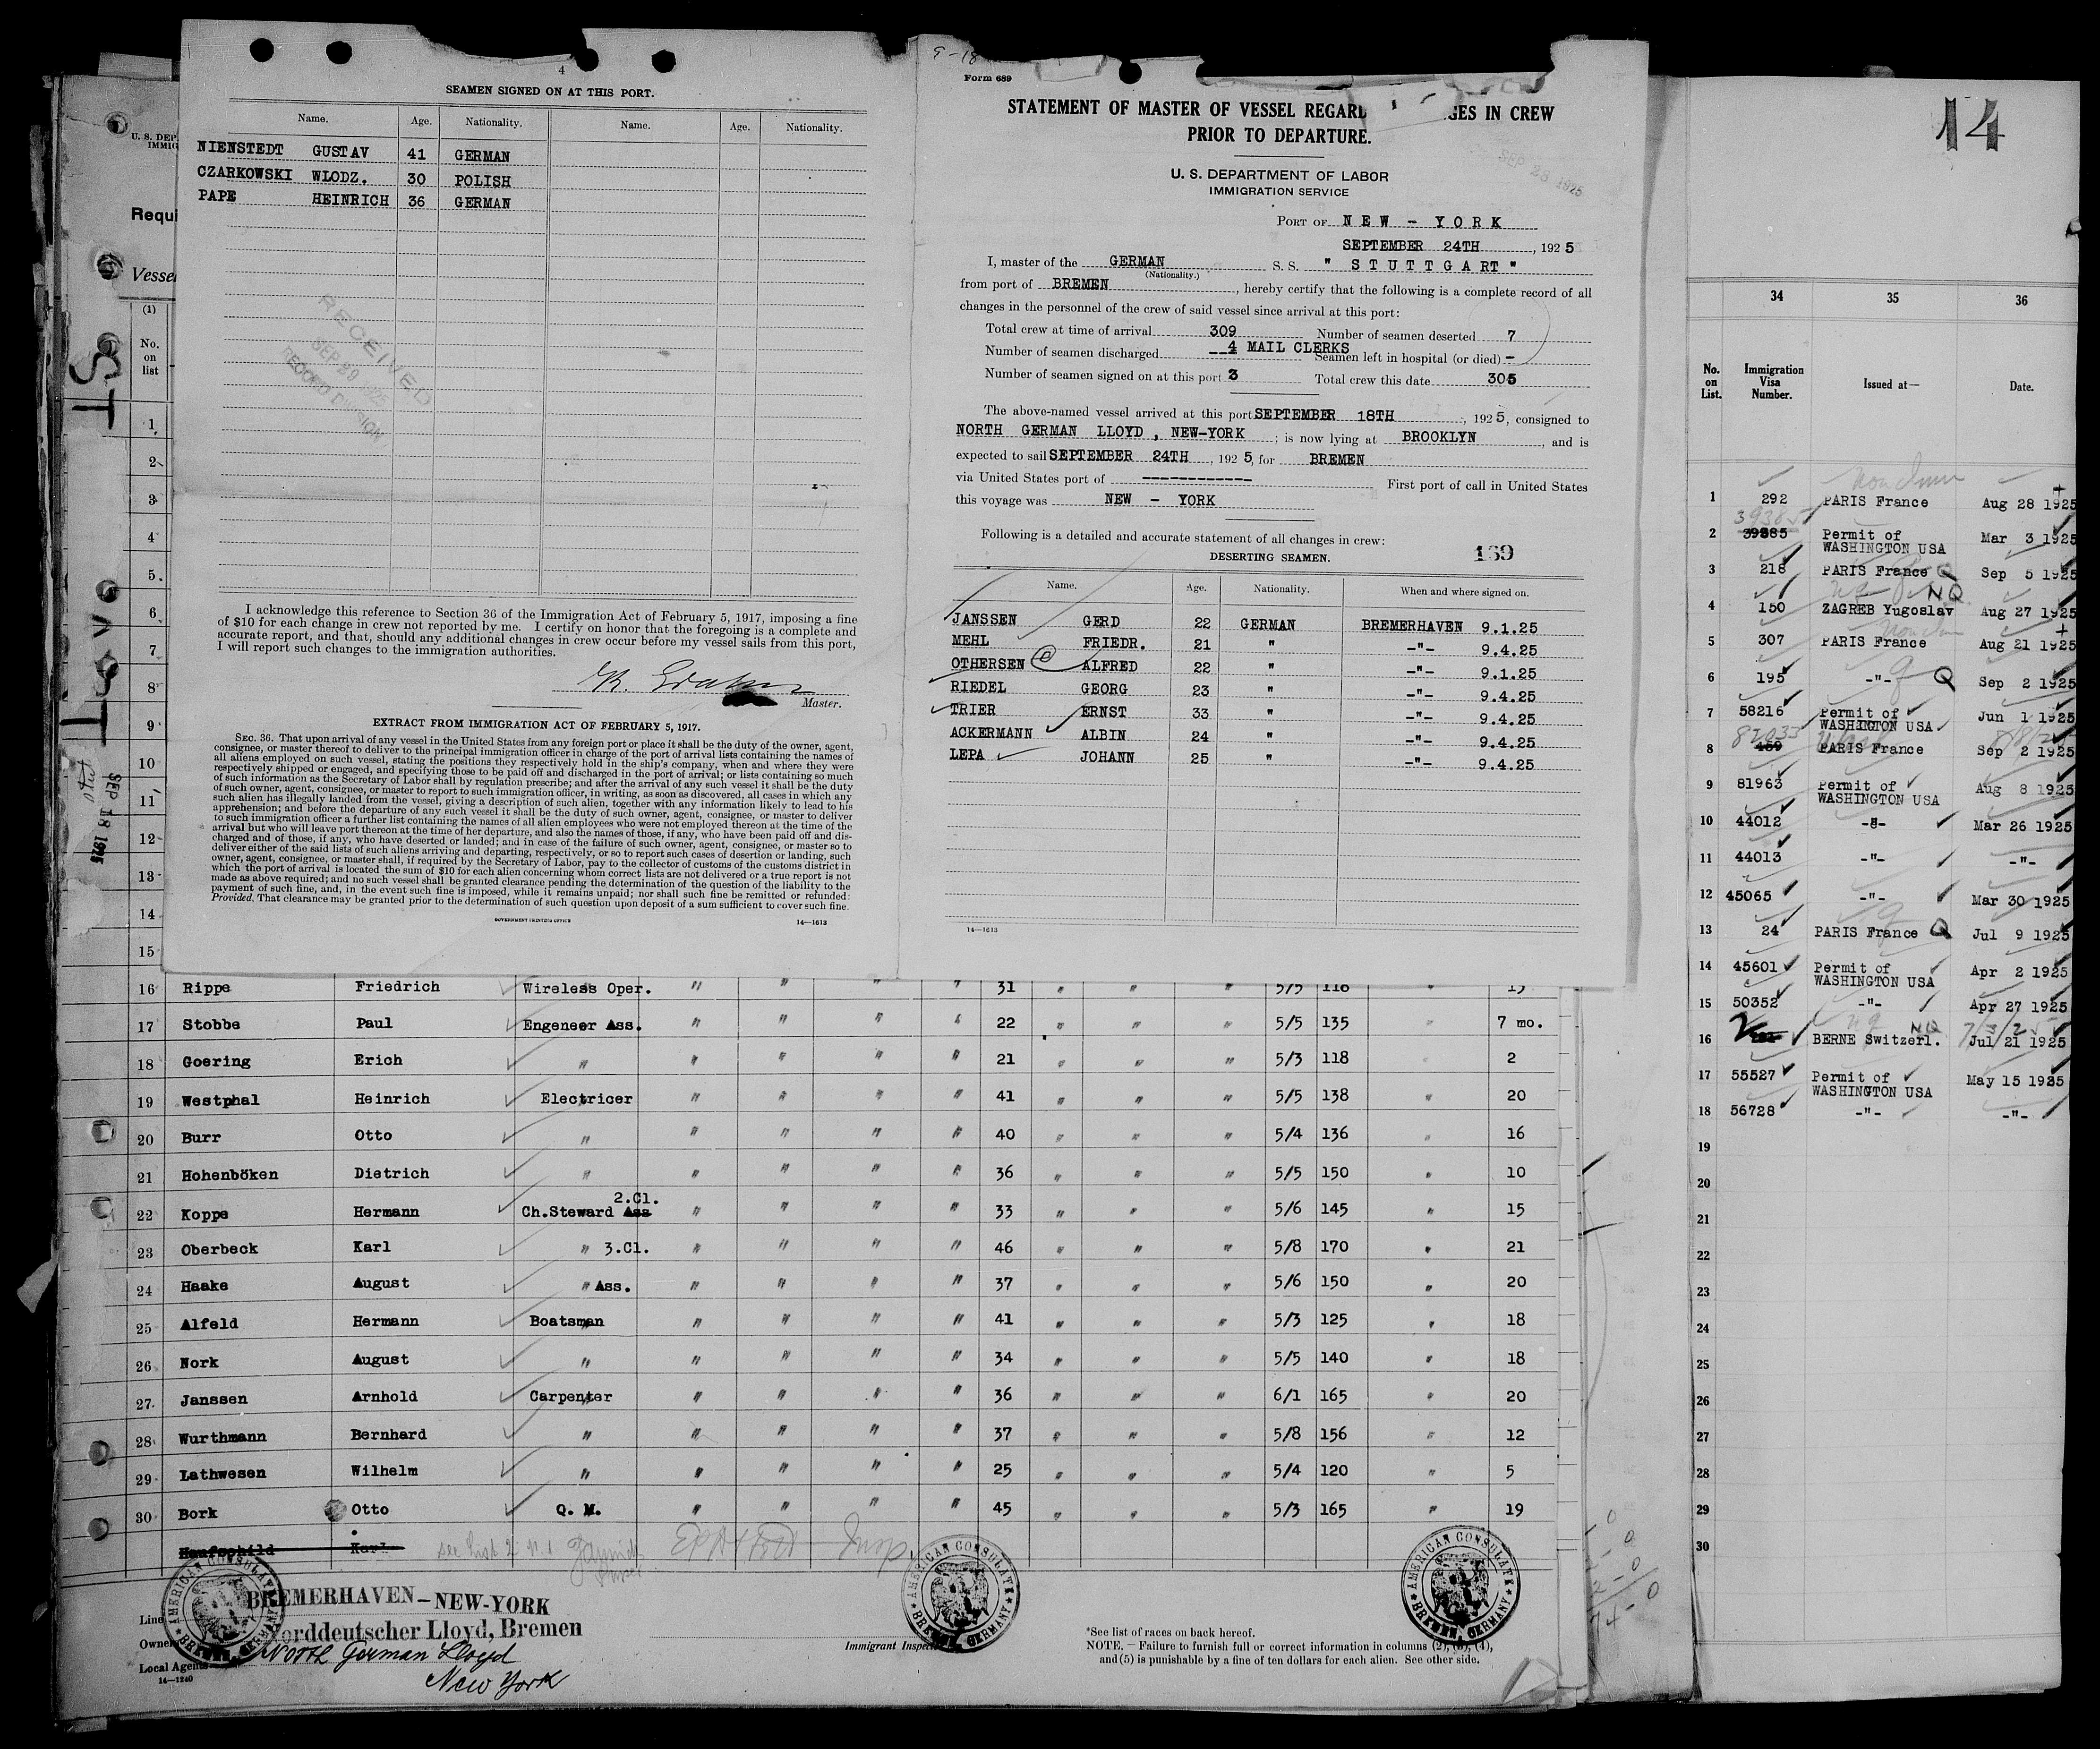 4
SEAMEN SIGNED ON AT THIS PORT.
Name. Age. Nationality. Name. Age. Nationality.
NIENSTEDT GUSTAV 41 GERMAN
CZARKOWSKI WLODZ. 30 POLISH
PAPE HEINRICH 36 GERMAN
RECEIVED
RECORD DIVISION
I acknowledge this reference to Section 36 of the Immigration Act of February 5, 1917, imposing a fine
of $10 for each change in crew not reported by me. I certify on honor that the foregoing is a complete and
accurate report, and that, should any additional changes in crew occur before my vessel sails from this port,
I will report such changes to the immigration authorities.
Master.
EXTRACT FROM IMMIGRATION ACT OF FEBRUARY 5, 1917.
SEC. 36. That upon arrival of any vessel in the United States from any foreign port or place it shall be the duty of the owner, agent,
consignee, or master thereof to deliver to the principal immigration officer in charge of the port of arrival lists containing the names of
all aliens employed on such vessel, stating the positions they respectively hold in the ship's company, when and where they were
respectively shipped or engaged, and specifying those to be paid off and discharged in the port of arrival; or lists containing so much
of such information as the Secretary of Labor shall by regulation prescribe; and after the arrival of any such vessel it shall be the duty
of such owner, agent, consignee, or master to report to such immigration officer, in writing, as soon as discovered, all cases in which any
such alien has illegally landed from the vessel, giving a description of such alien, together with any information likely to lead to his
apprehension; and before the departure of any such vessel it shall be the duty of such owner, agent, consignee, or master to deliver
to such immigration officer a further list containing the names of all alien employees who were not employed thereon at the time of the
arrival but who will leave port thereon at the time of her departure, and also the names of those, if any, who have been paid off and dis-
charged and of those, if any, who have deserted or landed; and in case of the failure of such owner, agent, consignee, or master so to
deliver either of the said lists of such aliens arriving and departing, respectively, or so to report such cases of desertion or landing, such
owner, agent, consignee, or master shall, if required by the Secretary of Labor, pay to the collector of customs of the customs district in
which the port of arrival is located the sum of $10 for each alien concerning whom correct lists are not delivered or a true report is not
made as above required; and no such vessel shall be granted clearance pending the determination of the question of the liability to the
payment of such fine, and, in the event such fine is imposed, while it remains unpaid; nor shall such fine be remitted or refunded:
Provided, That clearance may be granted prior to the determination of such question upon deposit of a sum sufficient to cover such fine.
GOVERNMENT PRINTING OFFICE 14—1613
9-18
Form 689
STATEMENT OF MASTER OF VESSEL REGARD GES IN CREW
PRIOR TO DEPARTURE.
SEP 28 1925
U. S. DEPARTMENT OF LABOR
IMMIGRATION SERVICE
PORT OF NEW - YORK
SEPTEMBER 24TH, 1925
I, master of the GERMAN S. S. " STUTTGART "
(Nationality.)
from port of BREMEN, hereby certify that the following is a complete record of all
changes in the personnel of the crew of said vessel since arrival at this port:
Total crew at time of arrival 309 Number of seamen deserted 7
Number of seamen discharged 4 MAIL CLERKS Seamen left in hospital (or died) -
Number of seamen signed on at this port 3 Total crew this date 305
The above-named vessel arrived at this port SEPTEMBER 18TH, 1925, consigned to
NORTH GERMAN LLOYD, NEW-YORK; is now lying at BROOKLYN, and is
expected to sail SEPTEMBER 24TH, 1925, for BREMEN
via United States port of ----------- First port of call in United States
this voyage was NEW - YORK
Following is a detailed and accurate statement of all changes in crew:
DESERTING SEAMEN. 169
Name. Age. Nationality. When and where signed on.
JANSSEN GERD 22 GERMAN BREMERHAVEN 9.1.25
MEHL FRIEDR. 21 " -"- 9.4.25
OTHERSEN ALFRED 22 " -"- 9.1.25
RIEDEL GEORG 23 " -"- 9.4.25
TRIER ERNST 33 " -"- 9.4.25
ACKERMANN ALBIN 24 " -"- 9.4.25
LEPA JOHANN 25 " -"- 9.4.25
14—1613
U. S. DEP
IMMIG
Requi
Vesse
(1)
No.
on
list
1
2
3
4
5
6
7
8
9
10
11
12
13
14
15
SEP 18 1925
16 Rippe Friedrich Wireless Oper. " " " " 31 " " " 5/5 118 " 15
17 Stobbe Paul Engeneer Ass. " " " " 22 " " " 5/5 135 " 7 mo.
18 Goering Erich " " " " " 21 " " " 5/3 118 " 2
19 Westphal Heinrich Electricer " " " " 41 " " " 5/5 138 " 20
20 Burr Otto " " " " " 40 " " " 5/4 136 " 16
21 Hohenböken Dietrich " " " " " 36 " " " 5/5 150 " 10
2.Cl.
22 Koppe Hermann Ch.Steward Ass " " " " 33 " " " 5/6 145 " 15
23 Oberbeck Karl " 3.Cl. " " " " 46 " " " 5/8 170 " 21
24 Haake August " Ass. " " " " 37 " " " 5/6 150 " 20
25 Alfeld Hermann Boatsman " " " " 41 " " " 5/3 125 " 18
26 Nork August " " " " " 34 " " " 5/5 140 " 18
27 Janssen Arnhold Carpenter " " " " 36 " " " 6/1 165 " 20
28 Wurthmann Bernhard " " " " " 37 " " " 5/8 156 " 12
29 Lathwesen Wilhelm " " " " " 25 " " " 5/4 120 " 5
30 Bork Otto Q. M. " " " " 45 " " " 5/3 165 " 19
Karl
AMERICAN CONSULATE BREMEN, GERMANY
AMERICAN CONSULATE BREMEN, GERMANY
AMERICAN CONSULATE BREMEN, GERMANY
Line BREMERHAVEN–NEW-YORK
Owner Norddeutscher Lloyd, Bremen
Local Agents North German Lloyd
New York
14—1240
Immigrant Inspec
*See list of races on back hereof.
NOTE. — Failure to furnish full or correct information in columns (2), (3), (4),
and (5) is punishable by a fine of ten dollars for each alien. See other side.
14
34 35 36
No. on List. Immigration Visa Number. Issued at— Date.
1 292 PARIS France Aug 28 1925
39385
2 39885 Permit of WASHINGTON USA Mar 3 1925
3 218 PARIS France Q Sep 5 1925
NQ
4 150 ZAGREB Yugoslav Aug 27 1925
5 307 PARIS France Aug 21 1925
6 195 -"- Q Sep 2 1925
7 58216 Permit of WASHINGTON USA Jun 1 1925
8 459 PARIS France Sep 2 1925
9 81963 Permit of WASHINGTON USA Aug 8 1925
10 44012 -"- Mar 26 1925
11 44013 -"- -"-
12 45065 -"- Mar 30 1925
13 24 PARIS France Q Jul 9 1925
14 45601 Permit of WASHINGTON USA Apr 2 1925
15 50352 -"- Apr 27 1925
NQ
16 BERNE Switzerl. Jul 21 1925
17 55527 Permit of WASHINGTON USA May 15 1925
18 56728 -"- -"-
19
20
21
22
23
24
25
26
27
28
29
30